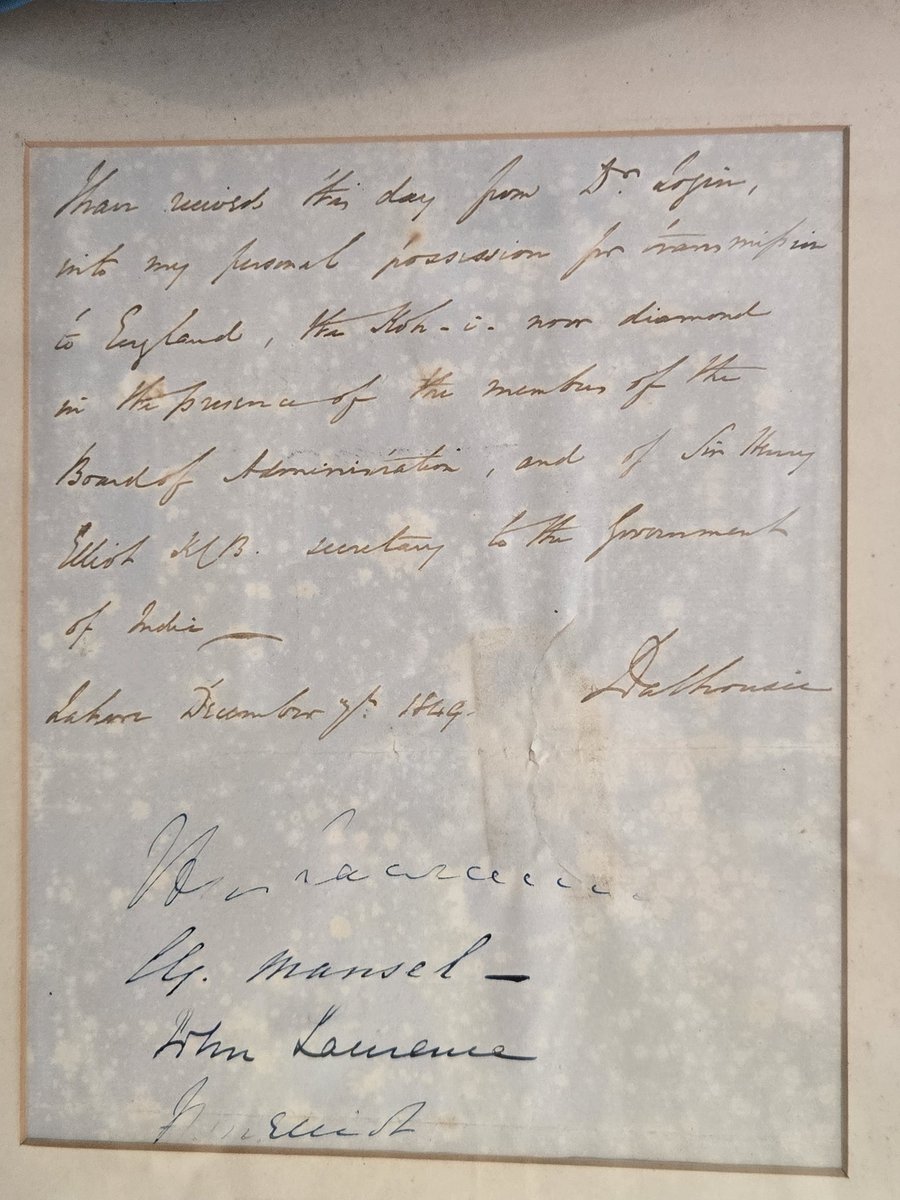 I have received this day from Dr Login,
into my personal possession for transmission
to England, the Koh-i-noor diamond
in the presence of the members of the
Board of Administration, and of Sir Henry
Elliot KCB. secretary to the Government
of India
Lahore December 7th 1849. Dalhousie
Lawrence
C G. Mansel
John Lawrence
Elliot